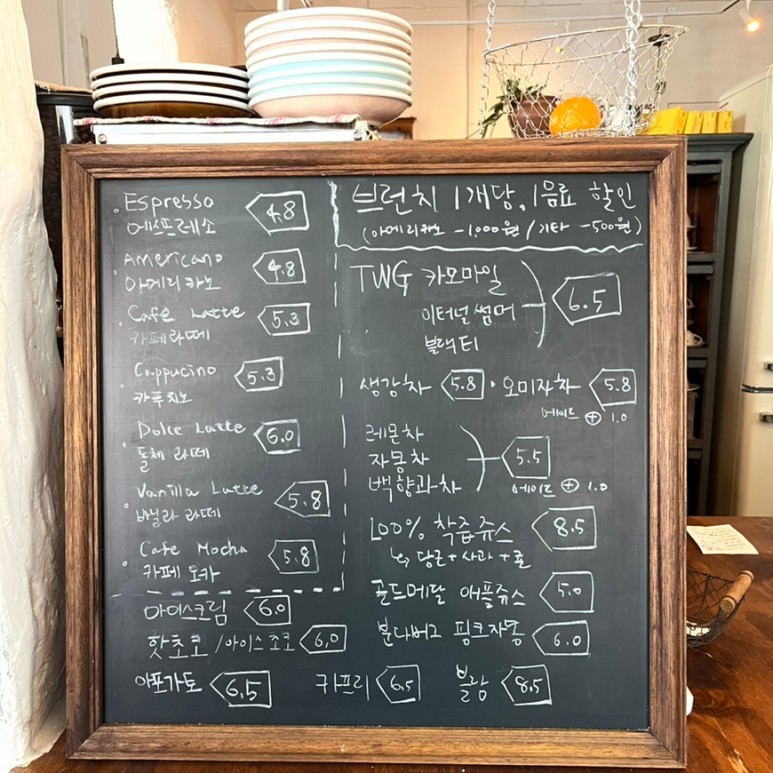 Espresso 4.8
에스프레소
Americano 4.8
아메리카노
Cafe Latte 5.3
카페라떼
Cappucino 5.3
카푸치노
Dolce Latte 6.0
돌체 라떼
Vanilla Latte 5.8
바닐라 라떼
Cafe Mocha 5.8
카페 모카
아이스크림 6.0
핫초코 / 아이스 초코 6.0
아포가토 6.5
브런치 1개당, 1음료 할인
(아메리카노 -1,000원 / 기타 -500원)
TWG 카모마일
이터널썸머 6.5
블랙티
생강차 5.8 · 오미자차 5.8
에이드 ⊕ 1.0
레몬차
자몽차 5.5
백향과차
에이드 ⊕ 1.0
100% 착즙쥬스 8.5
↳ 당근+사과+귤
골드메달 애플쥬스 5.0
분다버그 핑크자몽 6.0
카프리 6.5 블랑 8.5